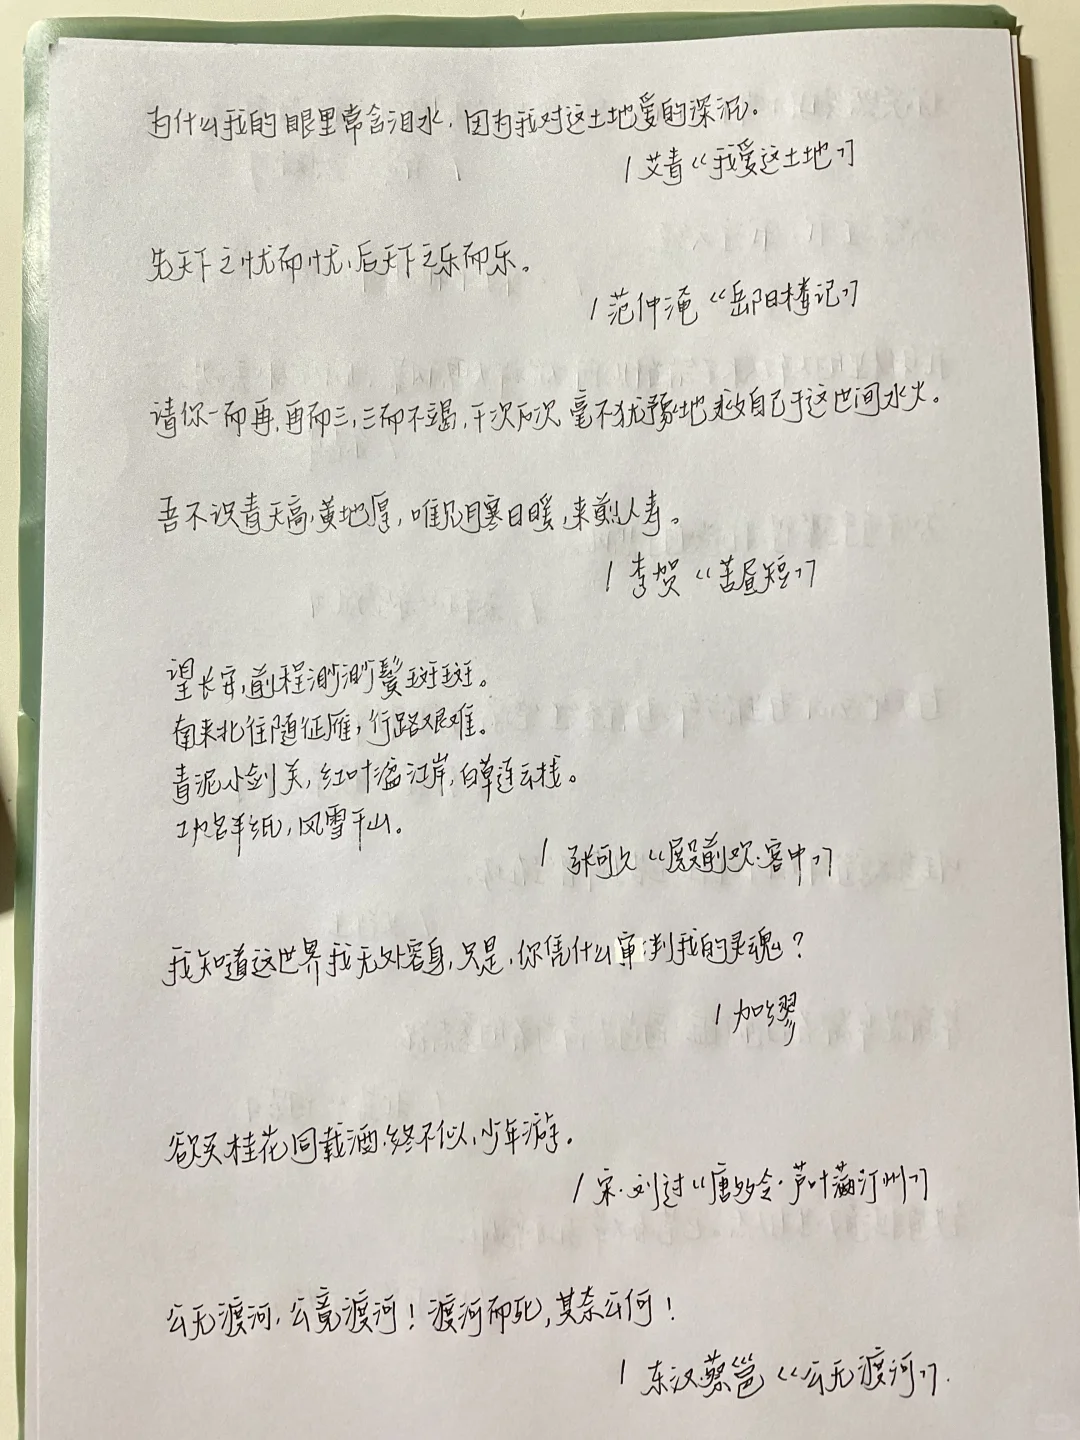 为什么我的眼里常含泪水,因为我对这土地爱的深沉。
/艾青《我爱这土地》
先天下之忧而忧,后天下之乐而乐。
/范仲淹《岳阳楼记》
请你一而再,再而三,三而不竭,千次万次,毫不犹豫地救自己于这世间水火。
吾不识青天高,黄地厚,唯见月寒日暖,来煎人寿。
/李贺《苦昼短》
望长安,前程渺渺鬓斑斑。
南来北往随征雁,行路艰难。
青泥小剑关,红叶湓江岸,白草连云栈。
功名半纸,风雪千山。
/张可久《殿前欢·客中》
我知道这世界我无处容身,只是,你凭什么审判我的灵魂?
/加缪
欲买桂花同载酒,终不似,少年游。
/宋·刘过《唐多令·芦叶满汀州》
公无渡河,公竟渡河!渡河而死,其奈公何!
/东汉·蔡邕《公无渡河》.